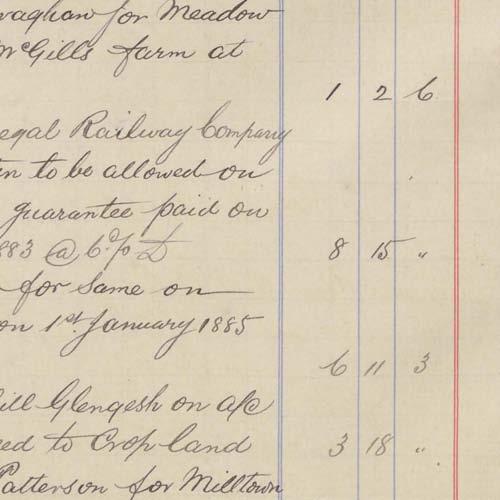 for Meadow
McGills farm at
1 2 6
Railway Company
to be allowed on
guarantee paid on
883 @ 6 % £ 8 15 "
for same on
on 1st January 1885
6 11 3
Glengesh on a/c
to Crop land 3 18 "
Patterson for Milltown